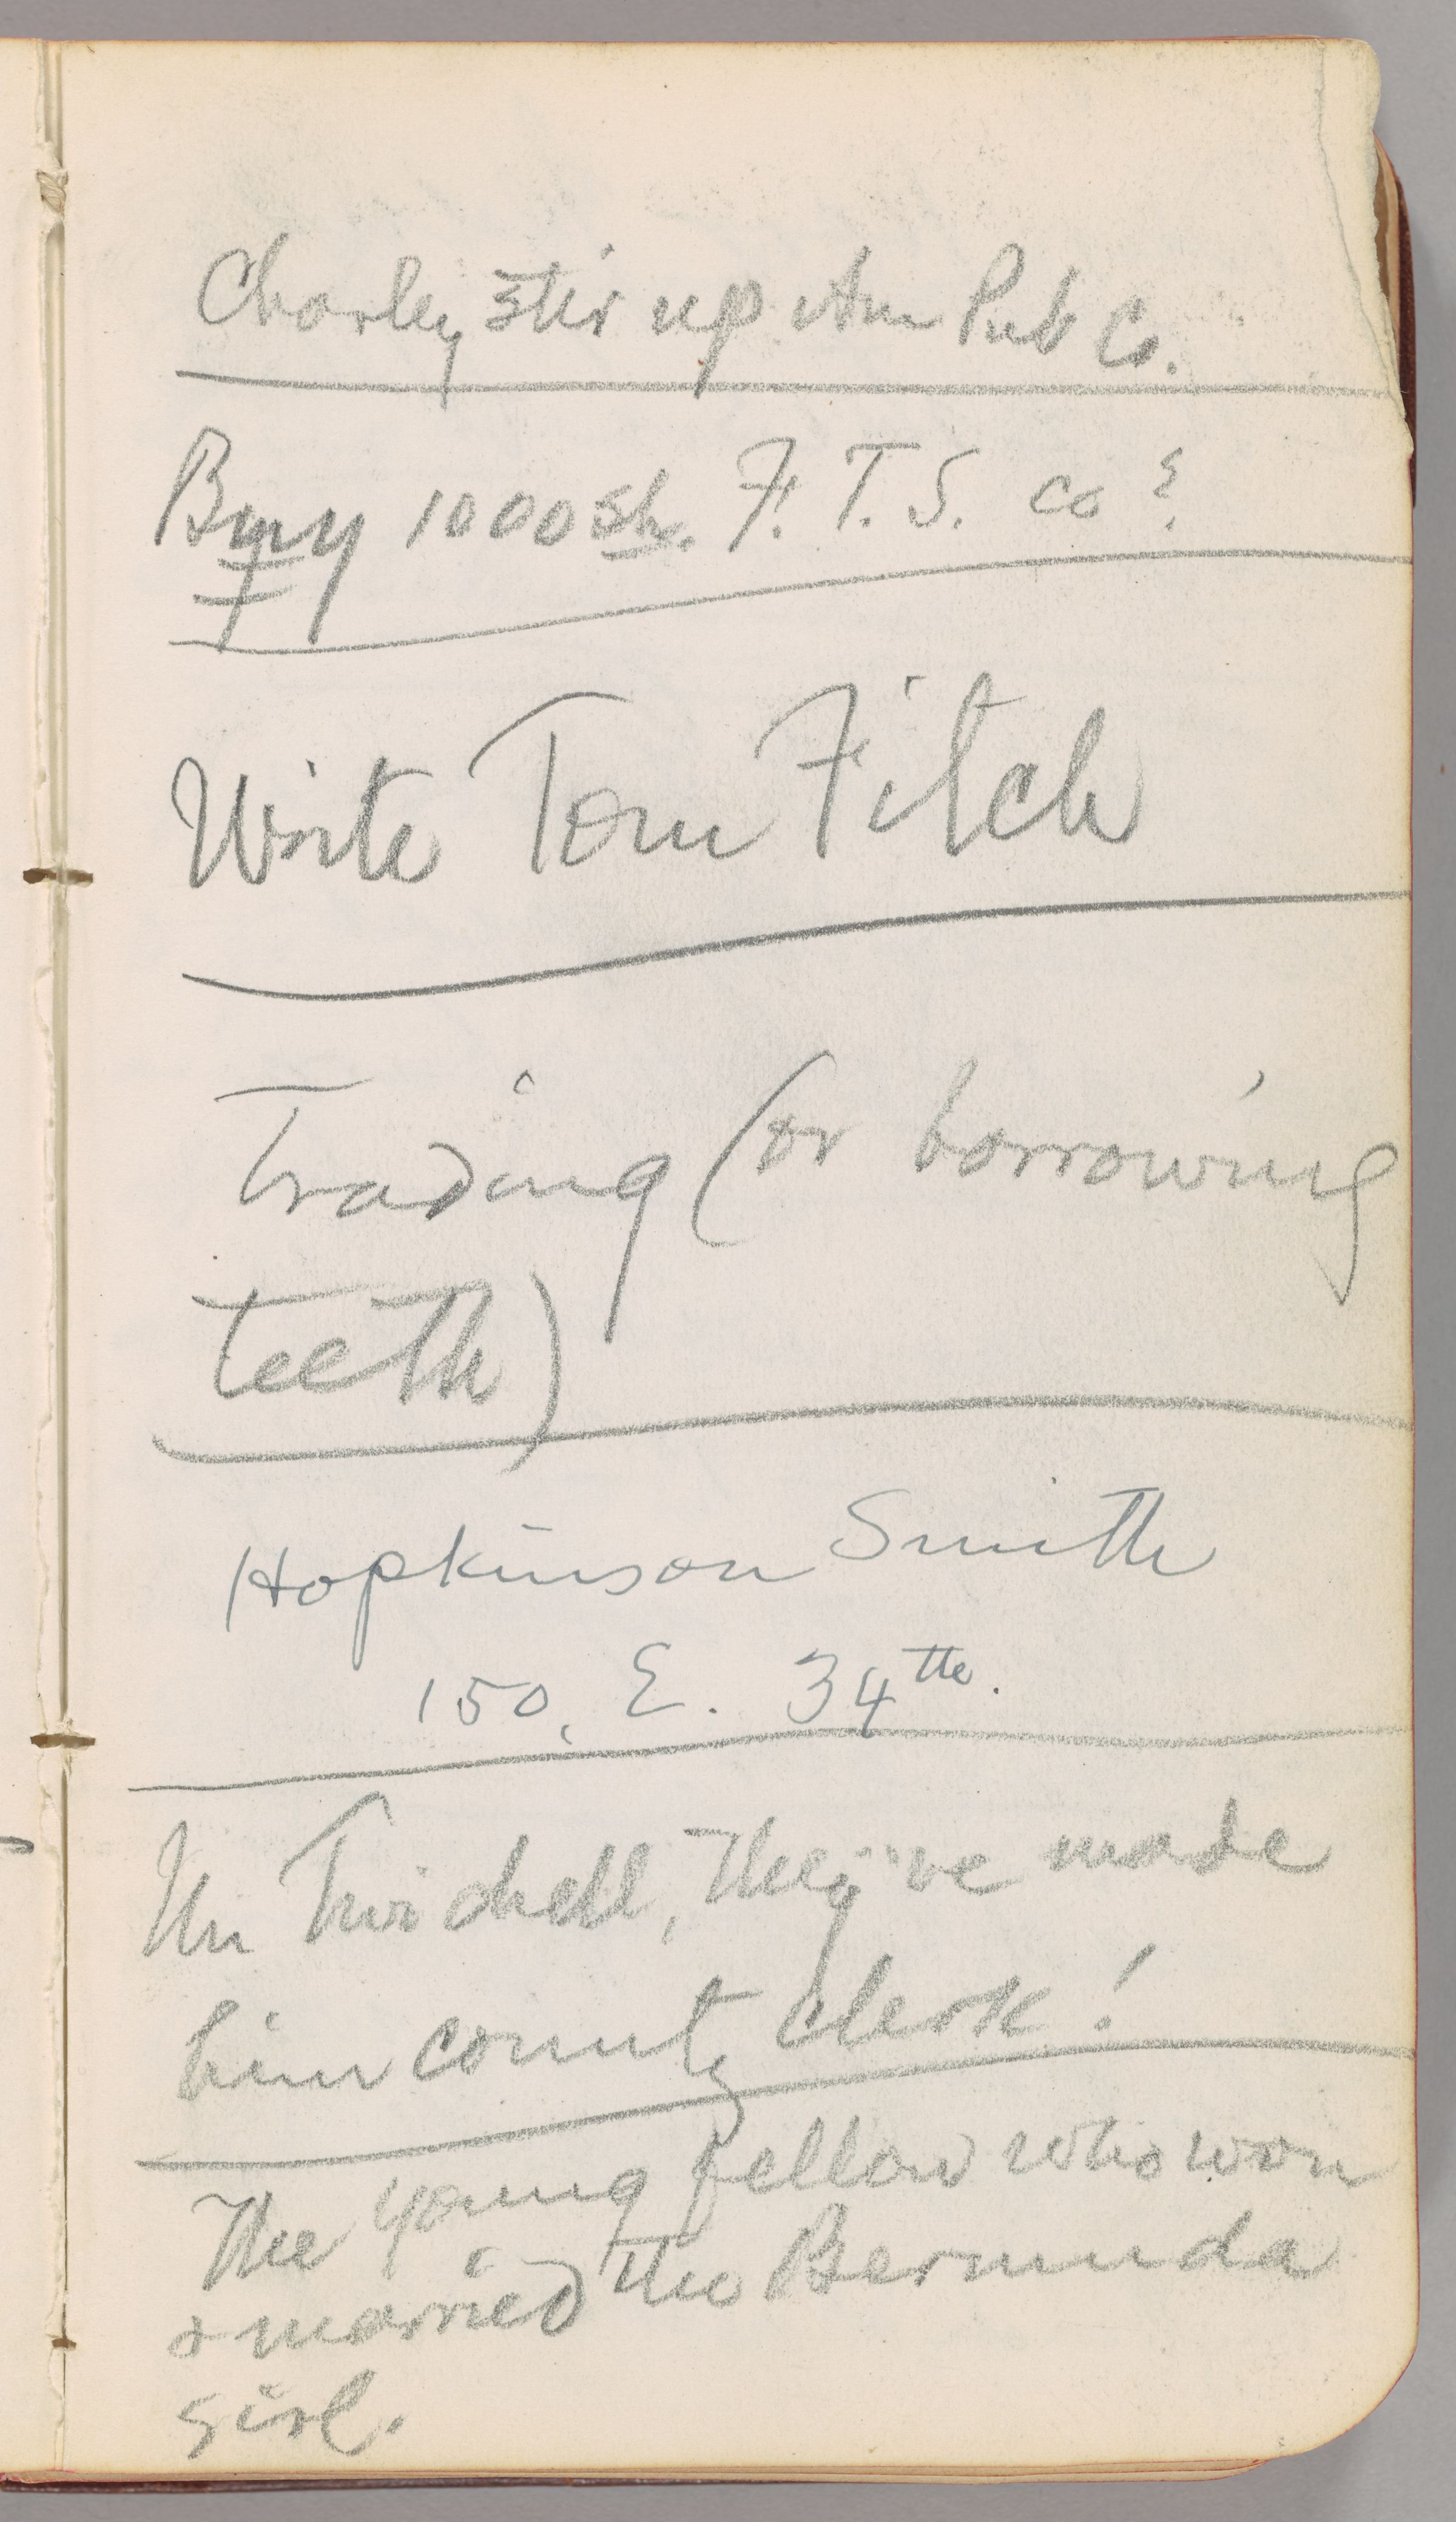 Charley stir up Am Pub Co.
Buy 1000 sh. F. T. S. co?
Write Tom Fitch
Trading (or borrowing
teeth)
Hopkinson Smith
150, E. 34th.
Mr Twichell, they've made
him county clerk!
The young fellow who won
& married the Bermuda
girl.